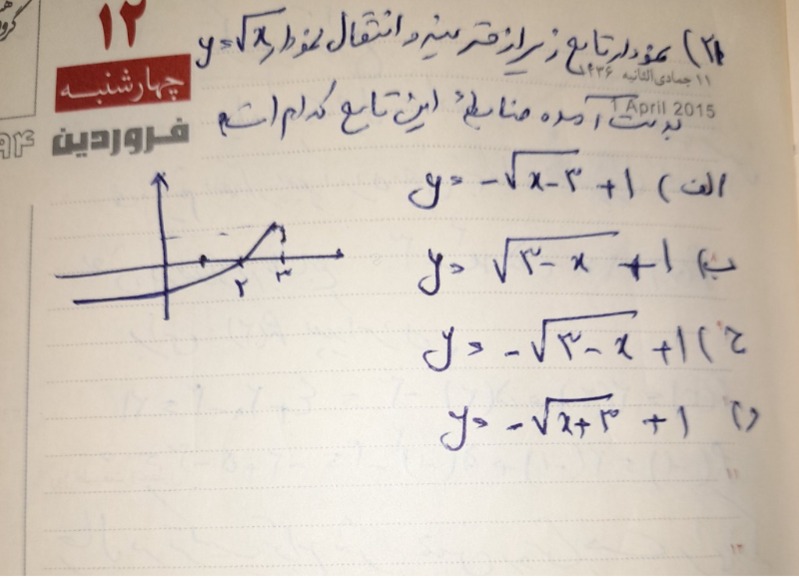 ۱۲
چهارشنبه
فروردین
۹۴
۱۱ جمادی الثانیه ۱۴۳۶
1 April 2015
۲) نمودار تابع زیر از قرینه و انتقال نمودار y=√x
بدست آمده ضابطهٔ این تابع کدام است
الف) y = -√x-۳ +۱
ب) y = √۳-x +۱
ج) y = -√۳-x +۱
د) y = -√x+۳ +۱
۲ ۳